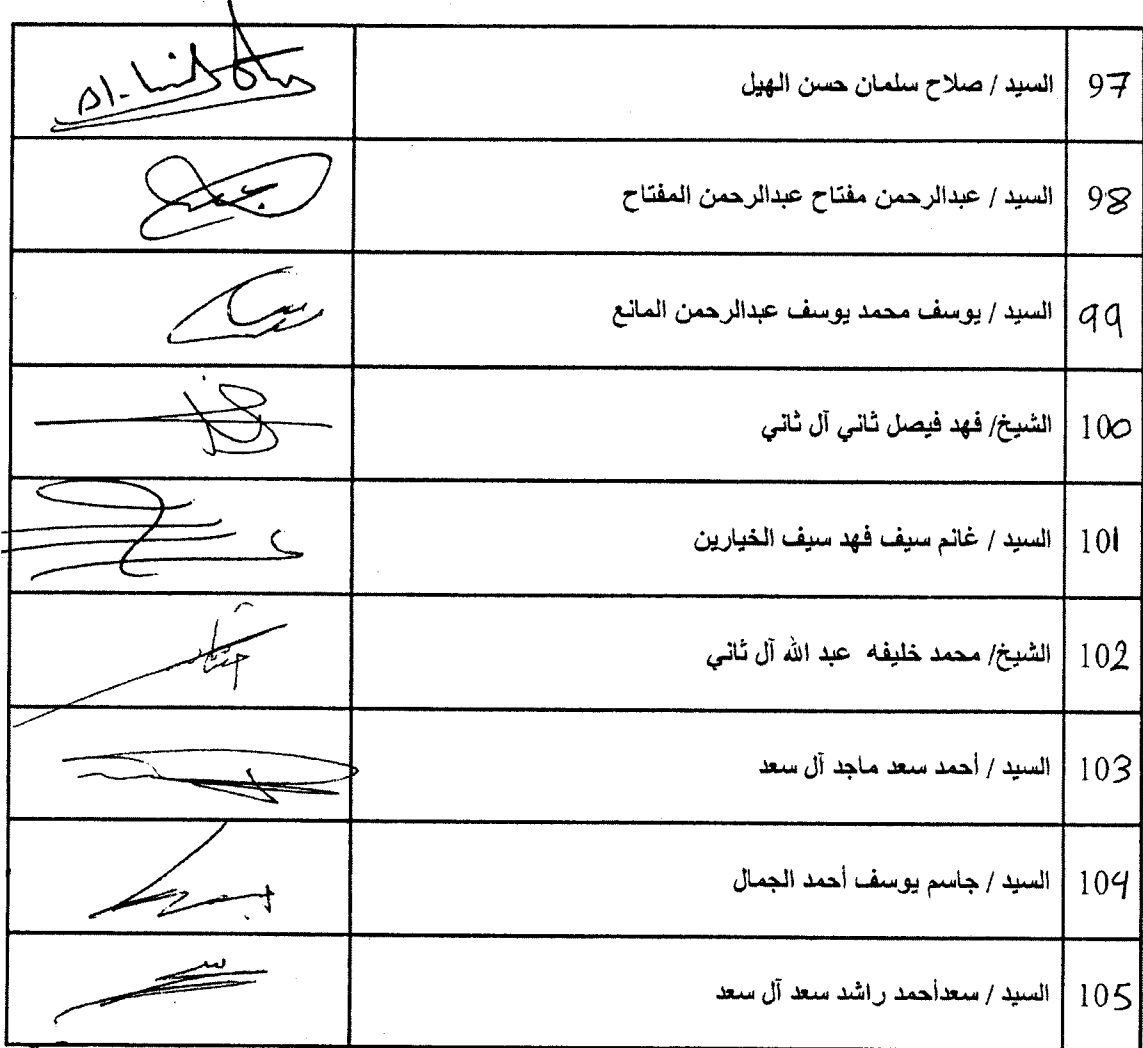 97 السيد / صلاح سلمان حسن الهيل
98 السيد / عبدالرحمن مفتاح عبدالرحمن المفتاح
99 السيد / يوسف محمد يوسف عبدالرحمن المانع
100 الشيخ/ فهد فيصل ثاني آل ثاني
101 السيد / غانم سيف فهد سيف الخيارين
102 الشيخ/ محمد خليفه عبد الله آل ثاني
103 السيد / أحمد سعد ماجد آل سعد
104 السيد / جاسم يوسف أحمد الجمال
105 السيد / سعدأحمد راشد سعد آل سعد